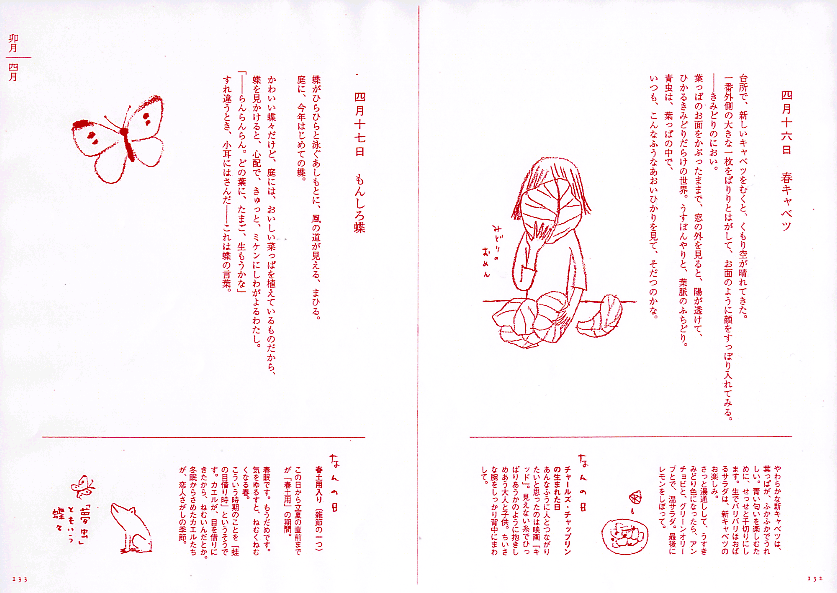 四月十六日　春キャベツ
台所で、新しいキャベツをむくと、くもり空が晴れてきた。
一番外側の大きな一枚をばりりとはがして、お面のように顔をすっぽり入れてみる。
――きみどりのにおい。
葉っぱのお面をかぶったままで、窓の外を見ると、陽が透けて、
ひかるきみどりだらけの世界。うすぼんやりと、葉脈のふちどり。
青虫は、葉っぱの中で、
いつも、こんなふうなあおいひかりを見て、そだつのかな。
みどりの
おめん
やわらかな新キャベツは、
葉っぱが、ふかふかでうれ
しい。青い匂いを楽しむた
めに、せっせと千切りにし
ます。生でバリバリほおば
るサラダは、新キャベツの
お楽しみ。
さっと湯通しして、うすき
みどり色になったら、アン
チョビと、グリーンオリー
ブとで、温サラダ。最後に
レモンをしぼって。
なんの日
チャールズ・チャップリン
の生まれた日
あんなふうに人とつながり
たいと思ったのは映画『キ
ッド』。見えない糸でひっ
ぱりあうかのように抱きし
めあう大人と子供。ちいさ
な腕をしっかり背中にまわ
して。
232
卯月
四月
四月十七日　もんしろ蝶
蝶がひらひらと泳ぐあしもとに、風の道が見える、まひる。
庭に、今年はじめての蝶。
かわいい蝶々だけど、庭には、おいしい菜っぱを植えているものだから、
蝶を見かけると、心配で、きゅっと、ミケンにしわがよるわたし。
「――らんらんらん。どの葉に、たまご、生もうかな」
すれ違うとき、小耳にはさんだ――これは蝶の言葉。
なんの日
春土用入り（雑節の一つ）
この日から立夏の直前まで
が「春土用」の期間。
春眠です。もうだめです。
気をゆるすと、ねむくねむ
くなる春。
こういう時期のことを「蛙
の目借り時」というそうで
す。カエルが、目を借りに
きたから、ねむいんだとか。
冬眠からさめたカエルたち
が、恋人さがしの季節。
「夢虫」
ともいう
蝶々
233